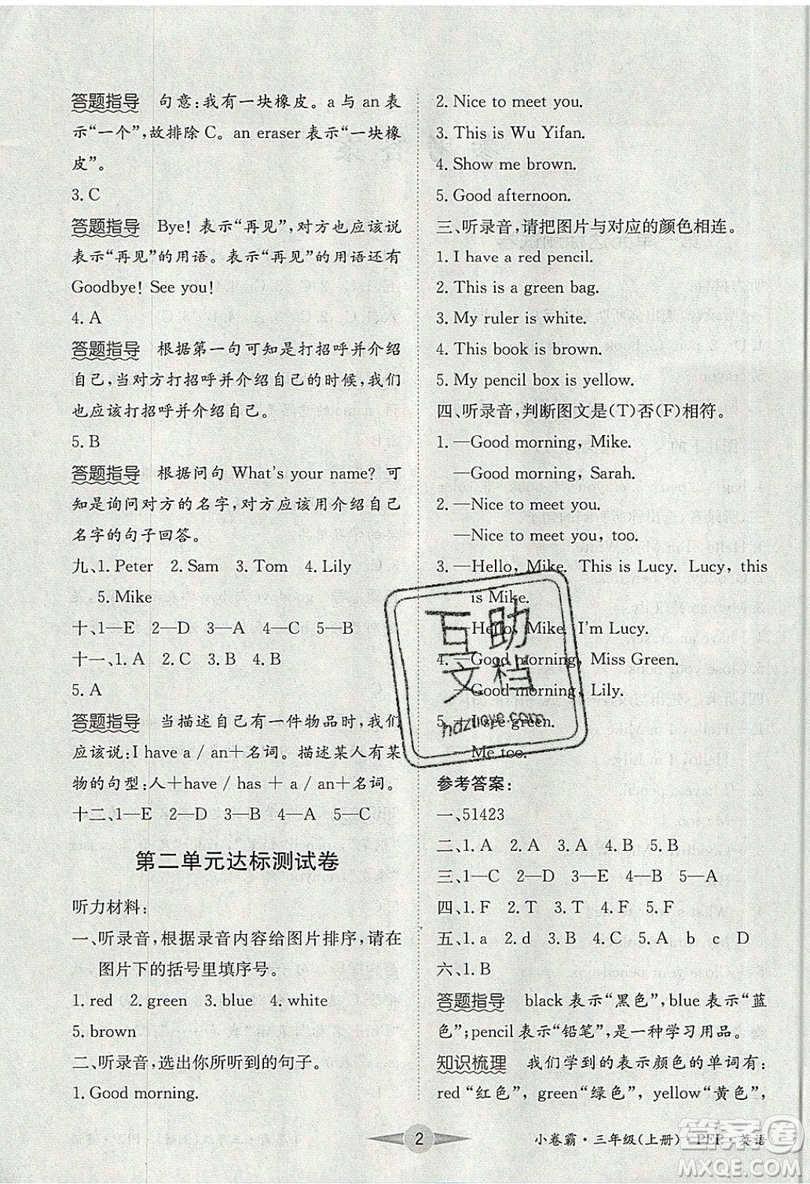 答题指导　句意:我有一块橡皮。a 与 an 表
示“一个”,故排除 C。an eraser 表示“一块橡
皮”。
3. C
答题指导　Bye! 表示“再见”,对方也应该说
表示“再见”的用语。“再见”的用语还有
Goodbye! See you!
4. A
答题指导　根据第一句可知是打招呼并介绍
自己,当对方打招呼并介绍自己的时候,我们
也应该打招呼并介绍自己。
5. B
答题指导　根据问句 What's your name? 可
知是询问对方的名字,对方应该用介绍自己
名字的句子回答。
九、1. Peter　2. Sam　3. Tom　4. Lily
5. Mike
十、1—E　2—D　3—A　4—C　5—B
十一、1. A　2. D　3. B　4. C
5. A
答题指导　当描述自己有一件物品时,我们
应该说:I have a / an+名词。描述某人有某
物的句型:人+have / has + a / an+名词。
十二、1—E　2—D　3—A　4—C　5—B
第二单元达标测试卷
听力材料:
一、听录音,根据录音内容给图片排序,请在
图片下的括号里填序号。
1. red　2. green　3. blue　4. white
5. brown
二、听录音,选出你所听到的句子。
1. Good morning.
2. Nice to meet you.
3. This is Wu Yifan.
4. Show me brown.
5. Good afternoon.
三、听录音,请把图片与对应的颜色相连。
1. I have a red pencil.
2. This is a green bag.
3. My ruler is white.
4. This book is brown.
5. My pencil box is yellow.
四、听录音,判断图文是(T)否(F)相符。
1. —Good morning, Mike.
—Good morning, Sarah.
2. —Nice to meet you.
—Nice to meet you, too.
3. —Hello, Mike. This is Lucy. Lucy, this
is Mike.
—Hello, Mike. I'm Lucy.
4. —Good morning, Miss Green.
—Good morning, Lily.
5. —I see green.
—Me too.
参考答案:
一、51423
二、1. A　2. A　3. B　4. A　5. B
三、1—C　2—A　3—E　4—B　5—D
四、1. F　2. T　3. T　4. F　5. F
五、1. a　d　2. D　A　b　c　D
六、1. B
答题指导　black 表示“黑色”,blue 表示“蓝
色”;pencil 表示“铅笔”,是一种学习用品。
知识梳理　我们学到的表示颜色的单词有:
red“红色”,green“绿色”,yellow“黄色”,
2
小卷霸·三年级(上册)·PEP·英语
互助
文档
hdzuoye.com
答案圈
MXQE.COM